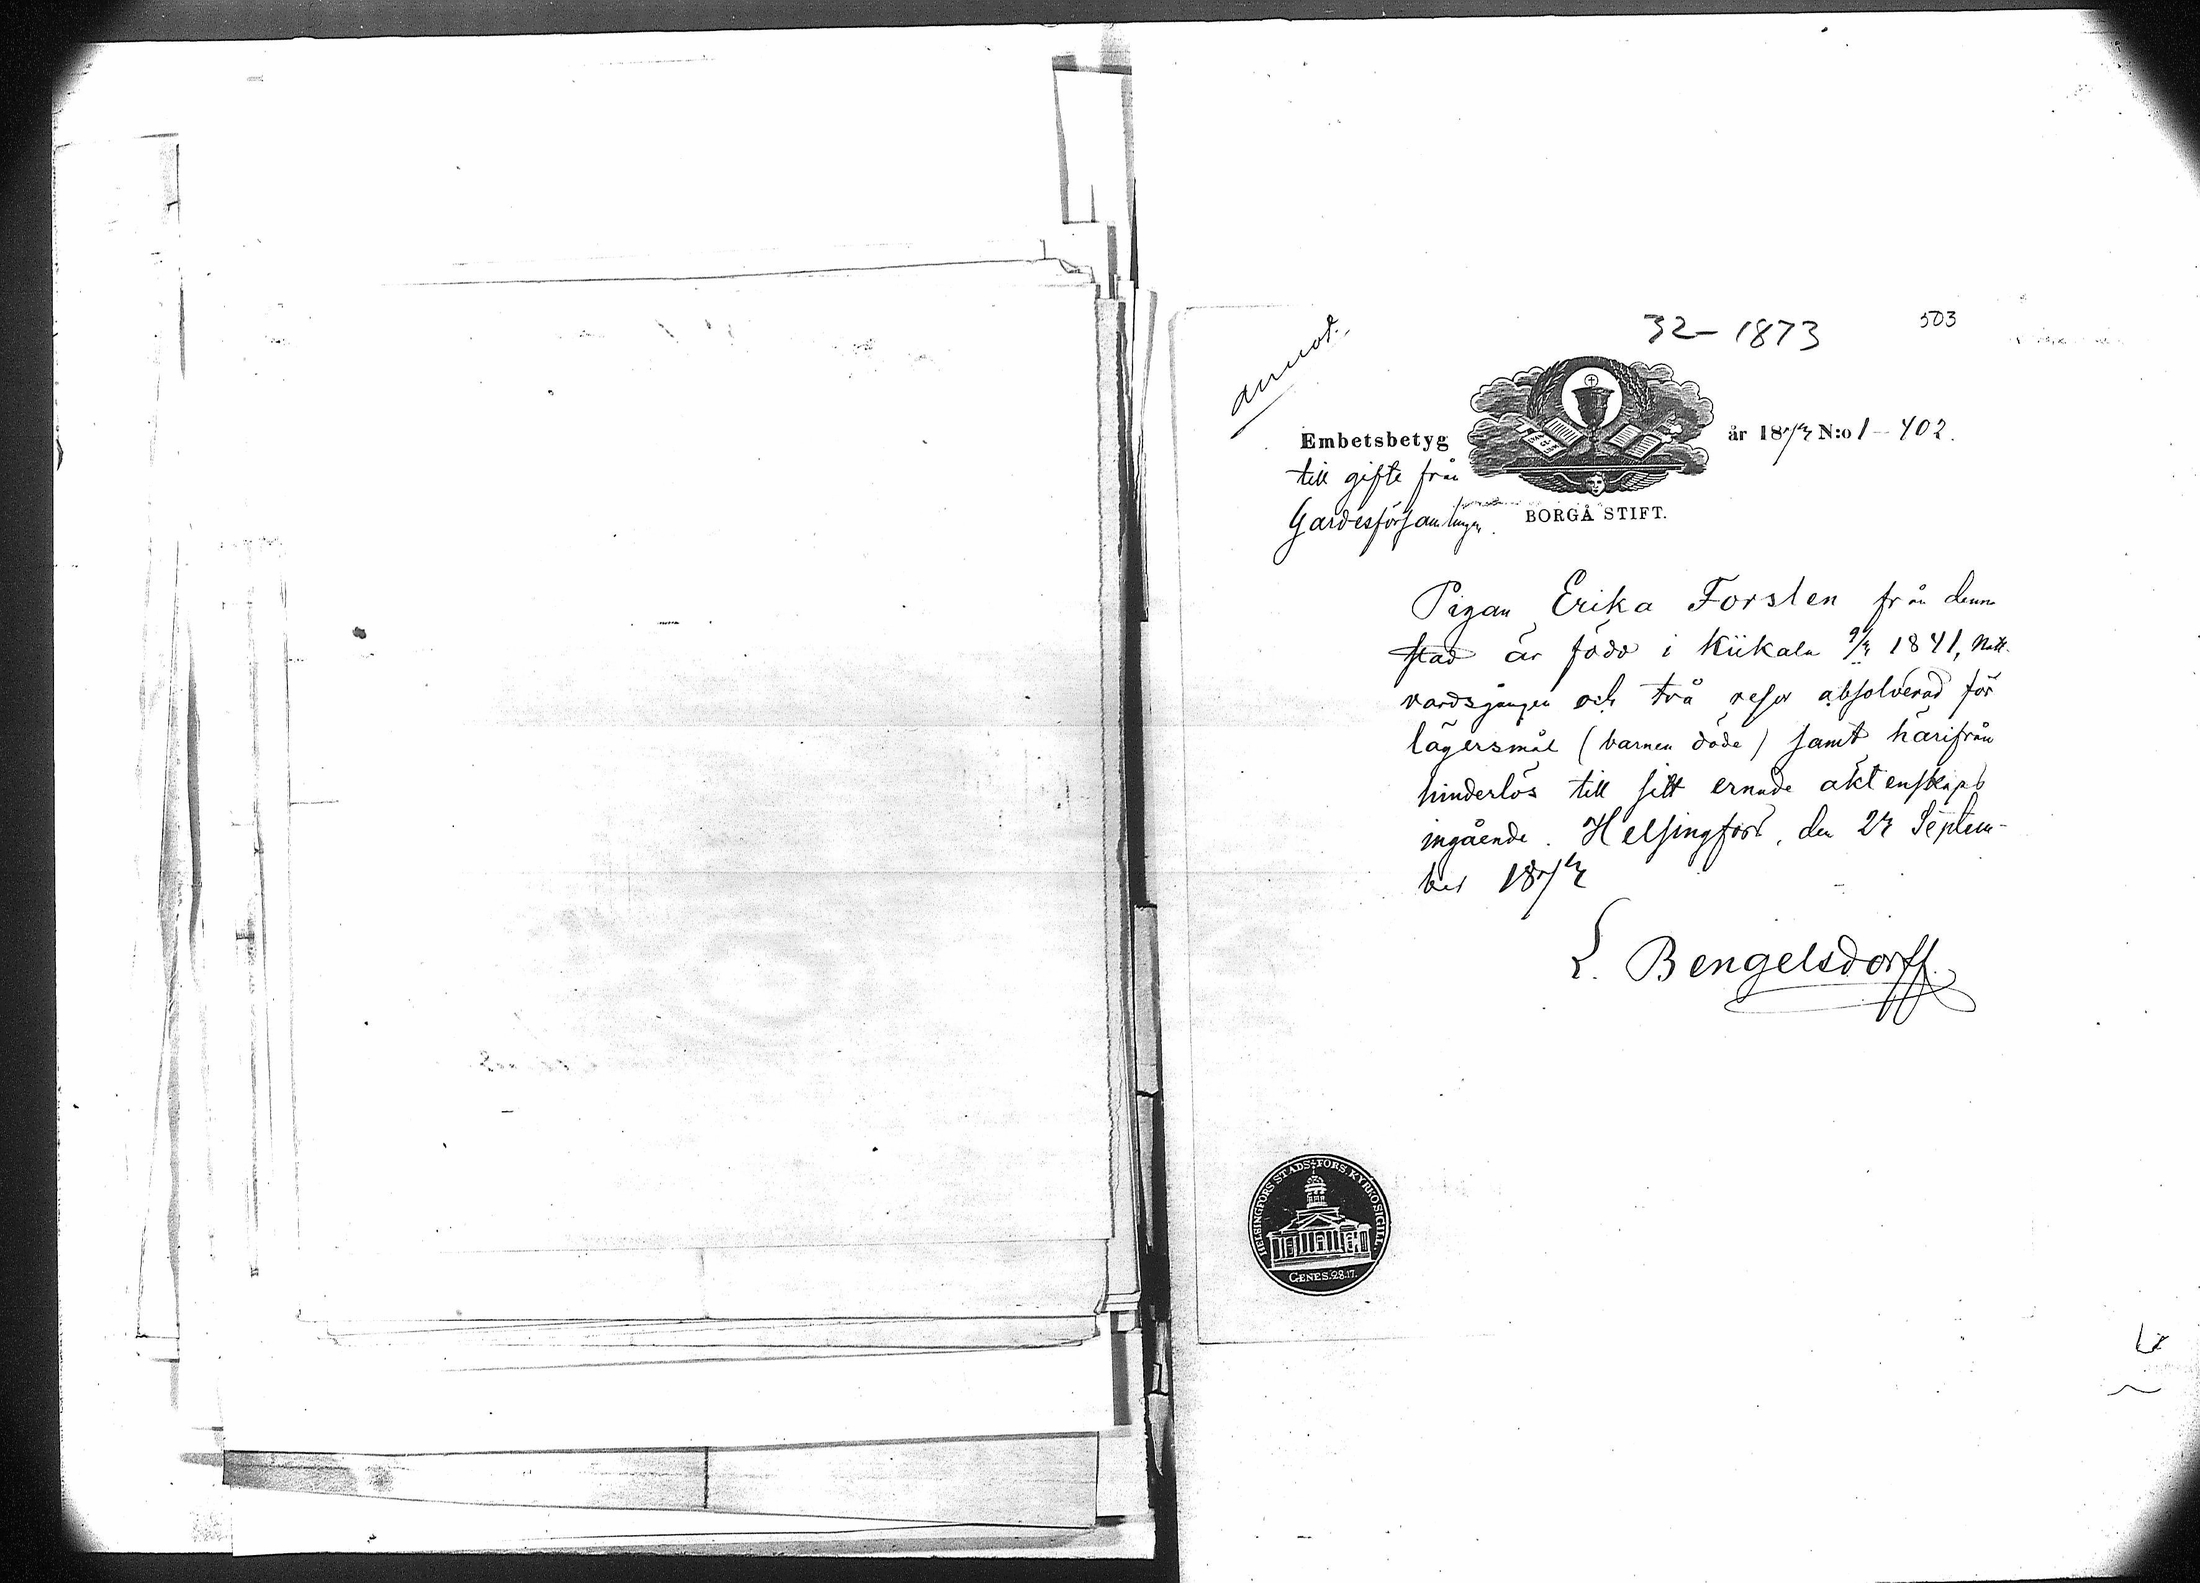 annot.
32-1873
503
Embetsbetyg
år 1873 N:o 1-402.
till gifte från
Gardesförsamlingen.
BORGÅ STIFT.
Pigan Erika Forsten från denna
stad är född i Kiikala 1841, Natt-
vardsgången och två resor absolverad för
lägersmål (barnen döda) samt härifrån
hinderlös till sitt ernade äktenskaps
ingående. Helsingfors, den 23 Septem-
ber 1873
L. Bengelsdorff.
HELSINGFORS STADS FÖRS. KYRKO SIGILL.
GENES. 28.17.